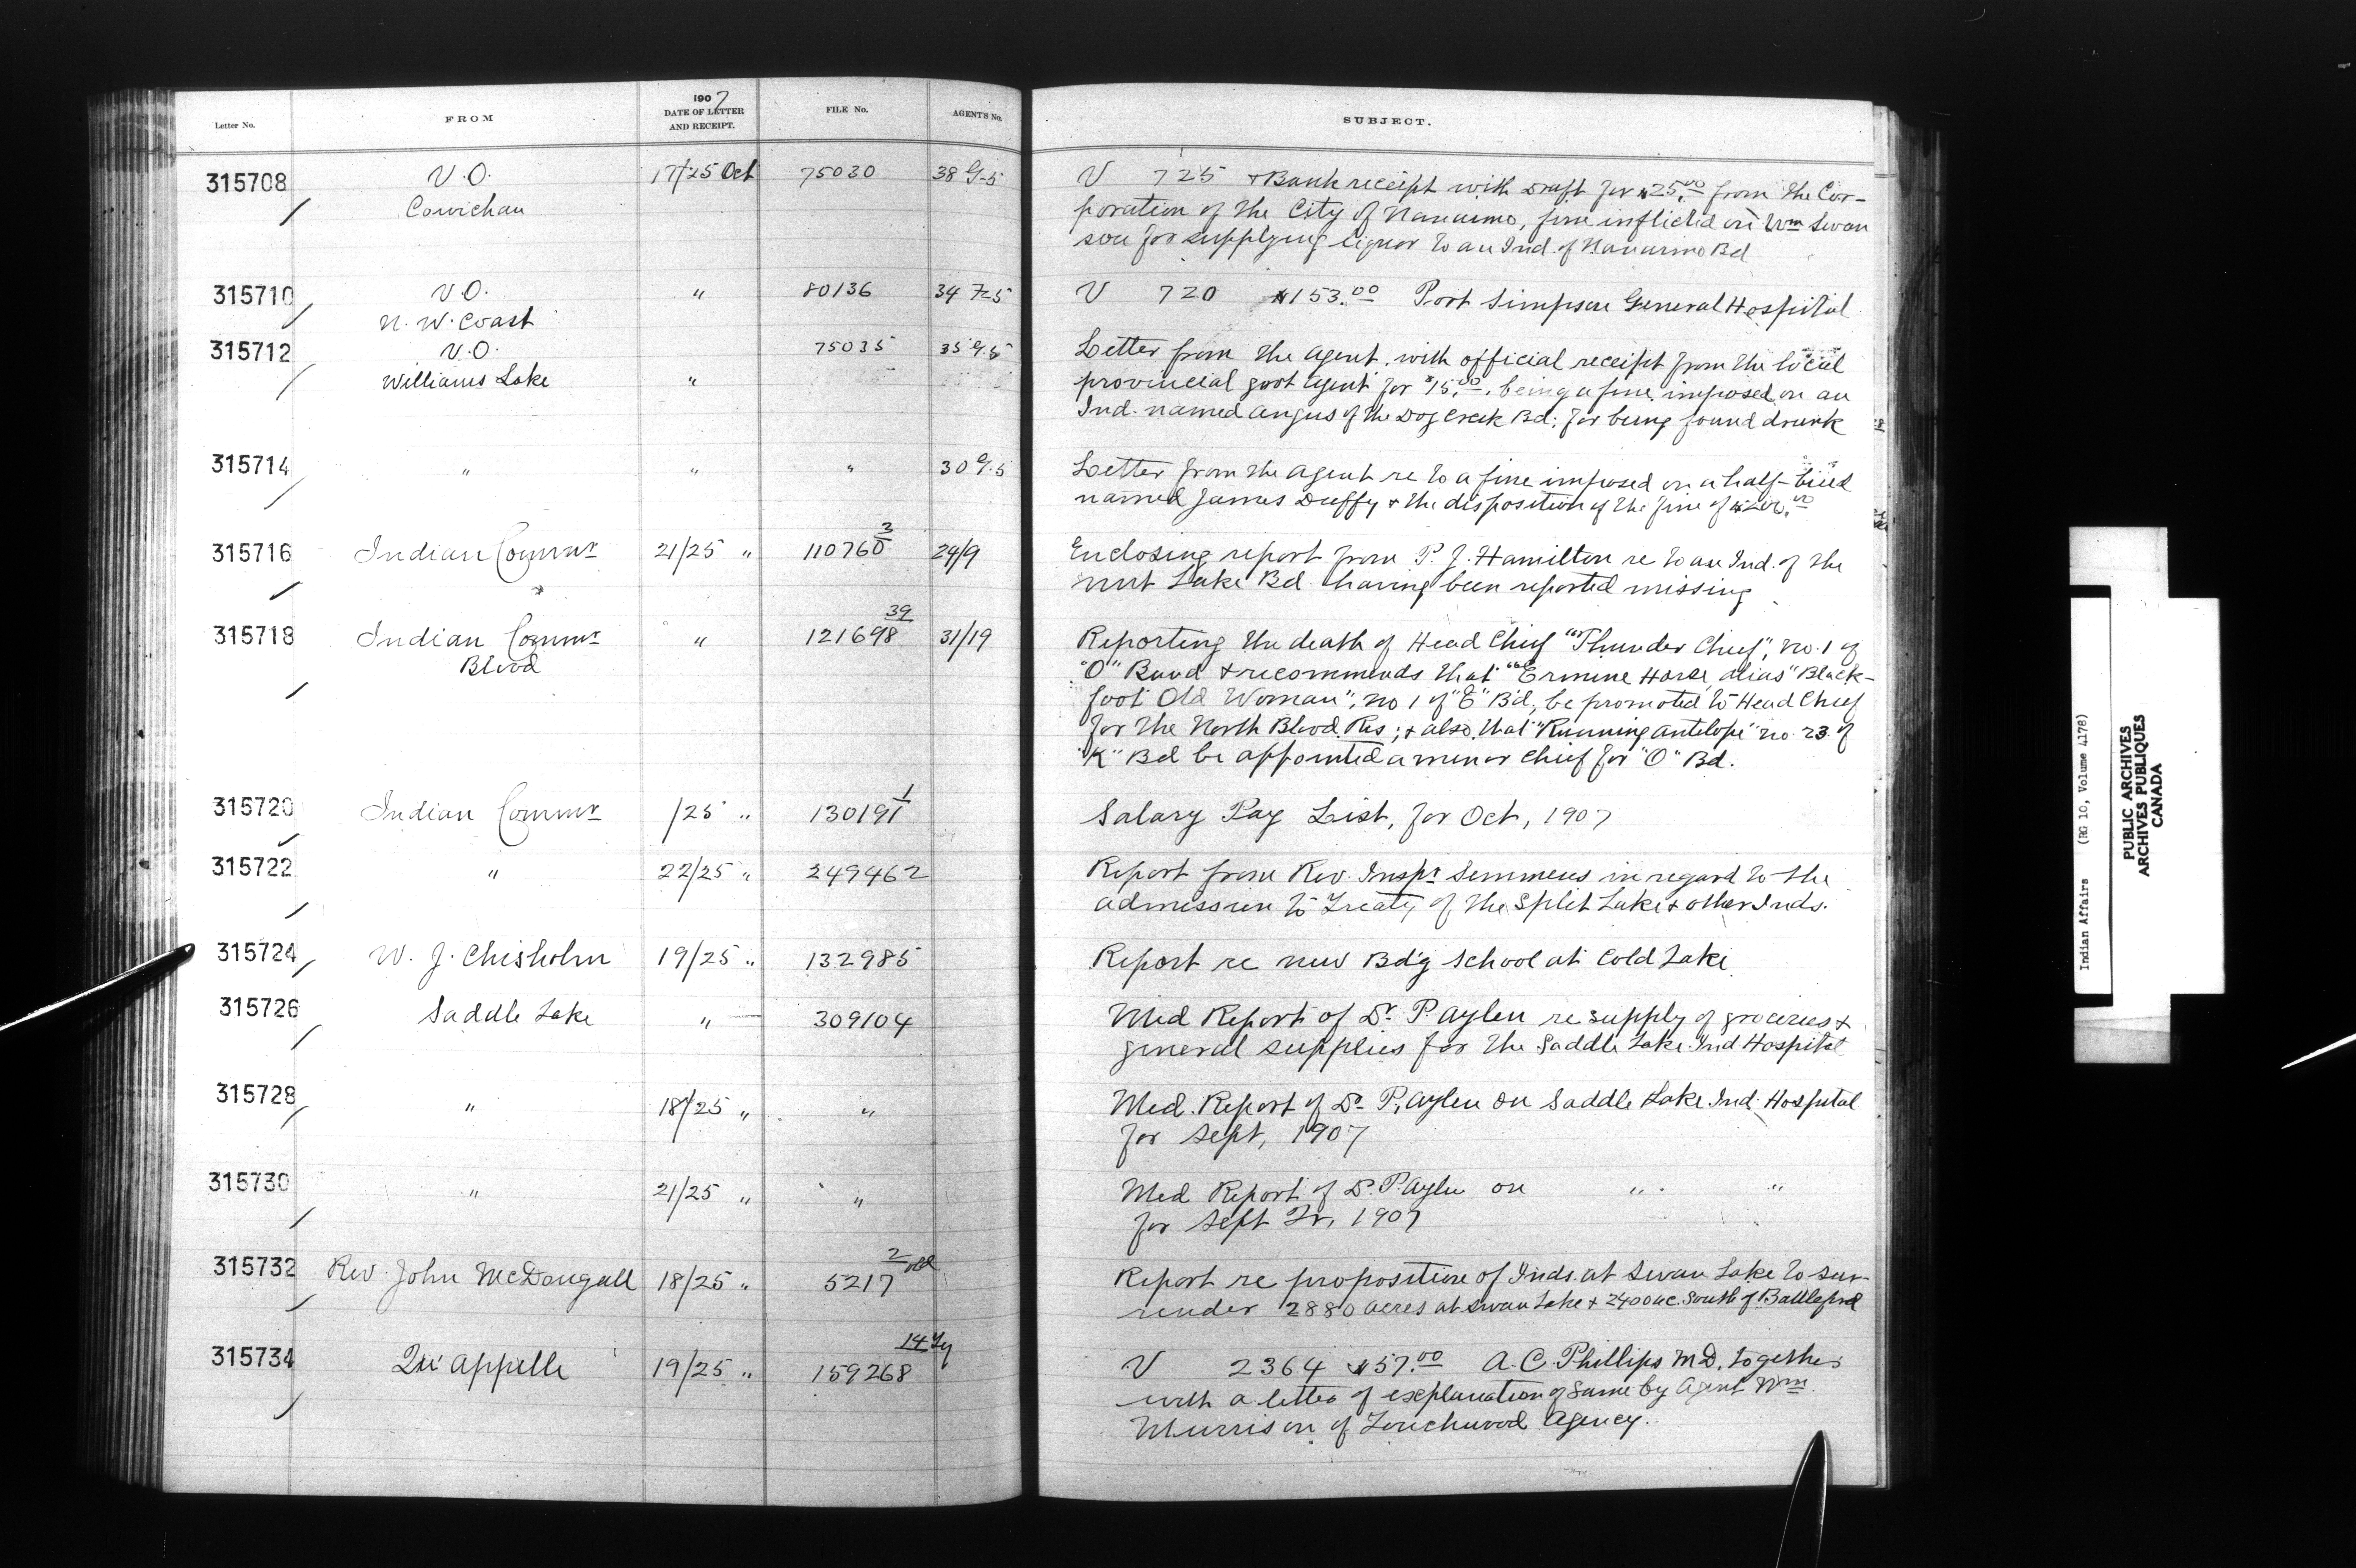 Letter No.
FROM
1907
DATE OF LETTER
AND RECEIPT.
FILE No.
AGENTS No.
SUBJECT.
315708 V.O. 17/25 Oct 75030 38 G-5 V 725 + Bank receipt with Draft for $25.00 from the Cor-
Cowichan poration of the City of Nanaimo, fine inflicted on Wm Swan
son for supplying liquor to an Ind. of Nanaimo Bd
315710 V.O. " 80136 34 7-5 V 720 $153.00 Port Simpson General Hospital
N. W. Coast
315712 V.O. 75035 35 G.5 Letter from the Agent, with official receipt from the local
Williams Lake " provincial govt agent for $15.00, being a fine imposed on an
Ind. named Angus of the Dog Creek Bd; for being found drunk
315714 " " " 30 G.5 Letter from the Agent re to a fine imposed on a half-breed
named James Duffy + the disposition of the fine of
315716 Indian Commr 21/25 " 110760 3 29/9 Enclosing report from P. J. Hamilton re to an Ind. of the
Nut Lake Bd having been reported missing
315718 Indian Commr " 121698 39 31/19 Reporting the death of Head Chief "Thunder Chief", no. 1 of
Blood "O" Band + recommends that "Ermine Horse, alias "Black-
foot Old Woman", no 1 of "E" B'd, be promoted to Head Chief
for the North Blood Res; + also that "Running Antelope" no. 23 of
"K" Bd be appointed a minor chief for "O" Bd.
315720 Indian Commr /25 " 130191 1 Salary Pay List, for Oct, 1907
315722 " 22/25 " 249462 Report from Rev. Inspr Semmens in regard to the
admission to Treaty of the Split Lake + other Inds.
315724 W. J. Chisholm 19/25 " 132985 Report re new Bd'g School at Cold Lake
315726 Saddle Lake " 309104 Med Report of Dr. P. Aylen re supply of groceries +
general supplies for the Saddle Lake Ind Hospital
315728 " 18/25 " " Med. Report of Dr P. Aylen on Saddle Lake Ind. Hospital
for Sept, 1907
315730 " 21/25 " " Med Report of Dr. P. Aylen on " "
for Sept Qr, 1907
315732 Rev. John McDougall 18/25 " 5217 2 old Report re proposition of Inds. at Swan Lake to sur-
render 2880 acres at Swan Lake + 2400 ac. South of Battleford
315734 Qu'Appelle 19/25 " 159268 14 V 2364 $57.00 A. C. Phillips M.D. together
with a letter of explanation of same by Agent Wm.
Murrison of Touchwood Agency.
Indian Affairs (RG 10, Volume 4178)
PUBLIC ARCHIVES
ARCHIVES PUBLIQUES
CANADA